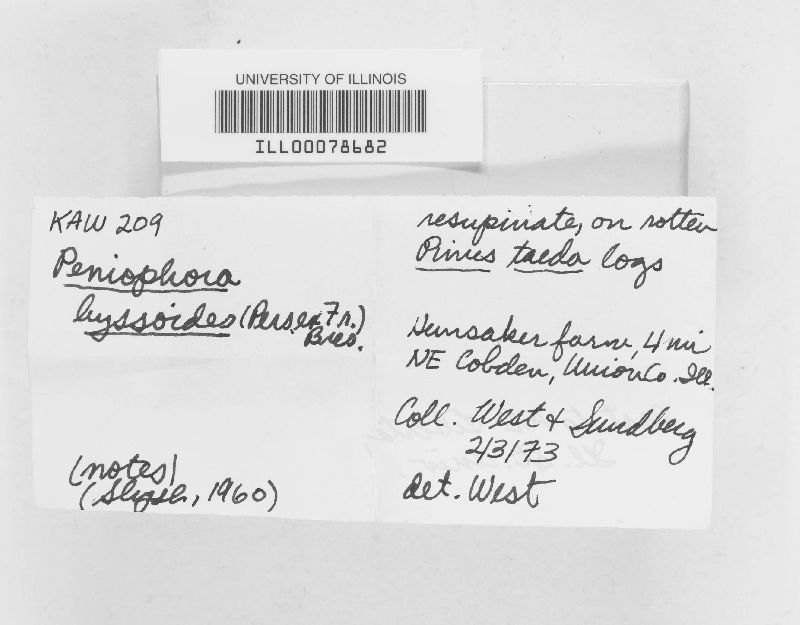 UNIVERSITY OF ILLINOIS
ILL00078682
KAW 209
Peniophora
byssoides (Pers. ex Fr.)
Bres.
(notes)
(Slysh, 1960)
resupinate, on rotten
Pinus taeda logs
Hunsaker farm, 4 mi
NE Cobden, Union Co. Ill.
Coll. West & Sundberg
2/3/73
det. West